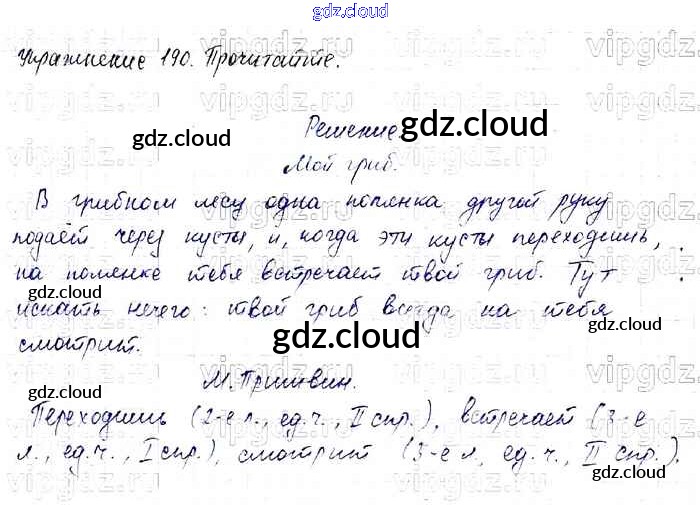 gdz.cloud
Упражнение 190. Прочитайте.
Решение.
Мой гриб.
В грибном лесу одна полянка другой руку
подаёт через кусты, и, когда эти кусты переходишь,
на полянке тебя встречает твой гриб. Тут
искать нечего: твой гриб всегда на тебя
смотрит.
М. Пришвин.
Переходишь (2-е л., ед.ч., II спр.), встречает (3-е
л., ед.ч., I спр.), смотрит (3-е л., ед.ч., II спр.).